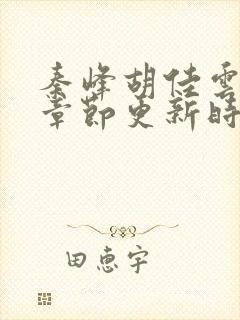 秦峰胡佳雲
章節更新時
田惠宇